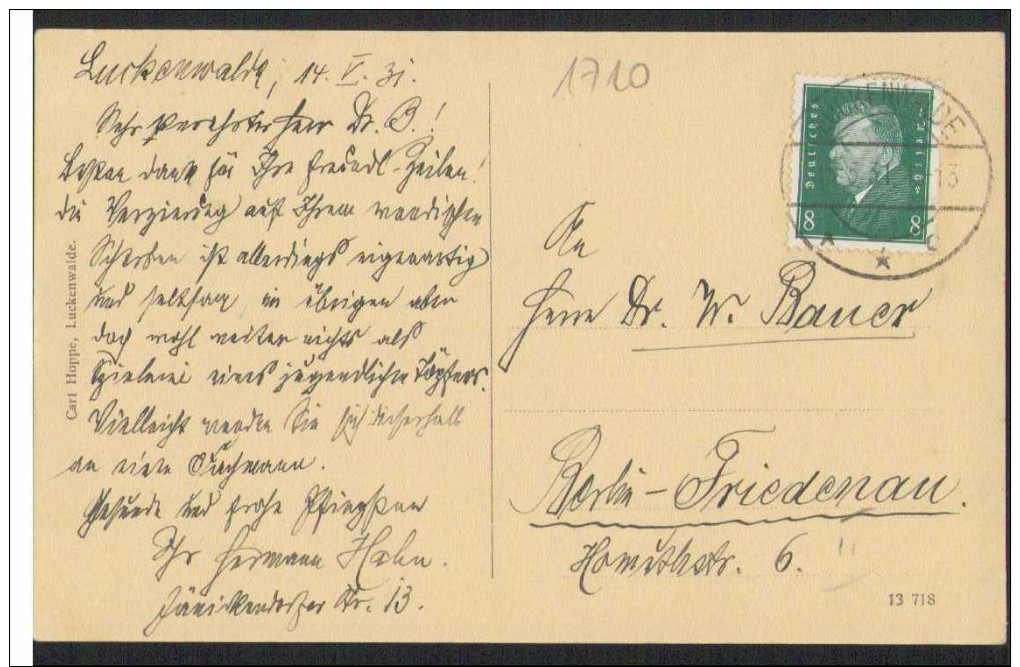 Luckenwalde, 14. V. 31.
Sehr verehrter Herr Dr. B.!
Besten Dank für Ihre freundl. Zeilen!
Die Verzierung auf Ihrem wendischen
Scherben ist allerdings eigenartig
und seltsam, im übrigen aber
doch wohl weiter nichts als
Spielerei eines jugendlichen Töpfers.
Vielleicht wenden Sie sich
an einen Fachmann.
Gesunde und frohe Pfingsten
Ihr Hermann
Jänickendorfer Str. 13.
Carl Hoppe, Luckenwalde.
1710
Deutsches Reich
8 8
An
Herrn Dr. W. Bauer
Berlin-Friedenau.
6.
13 718